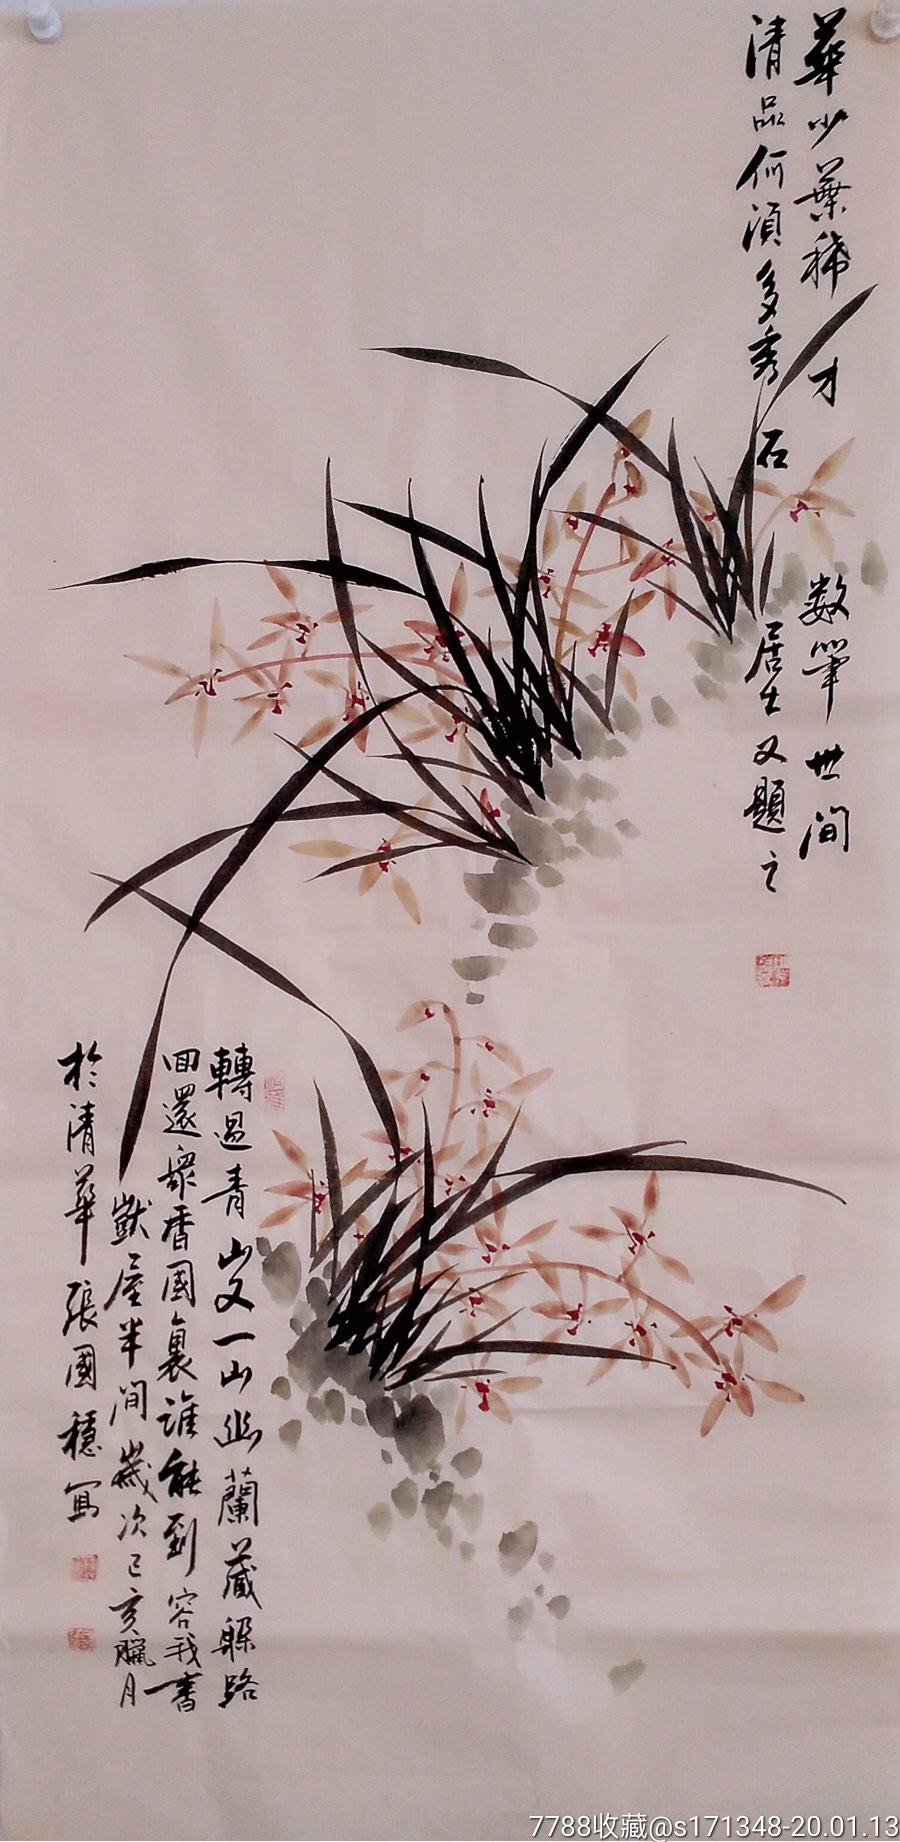 華少葉稀才数筆世间
清品何須多秀石居士又題之
轉過青山又一山幽蘭藏躲路
回還衆香國裏誰能到容我書
獃屋半间歲次己亥臘月
於清華張國穩寫
7788收藏@s171348-20.01.13